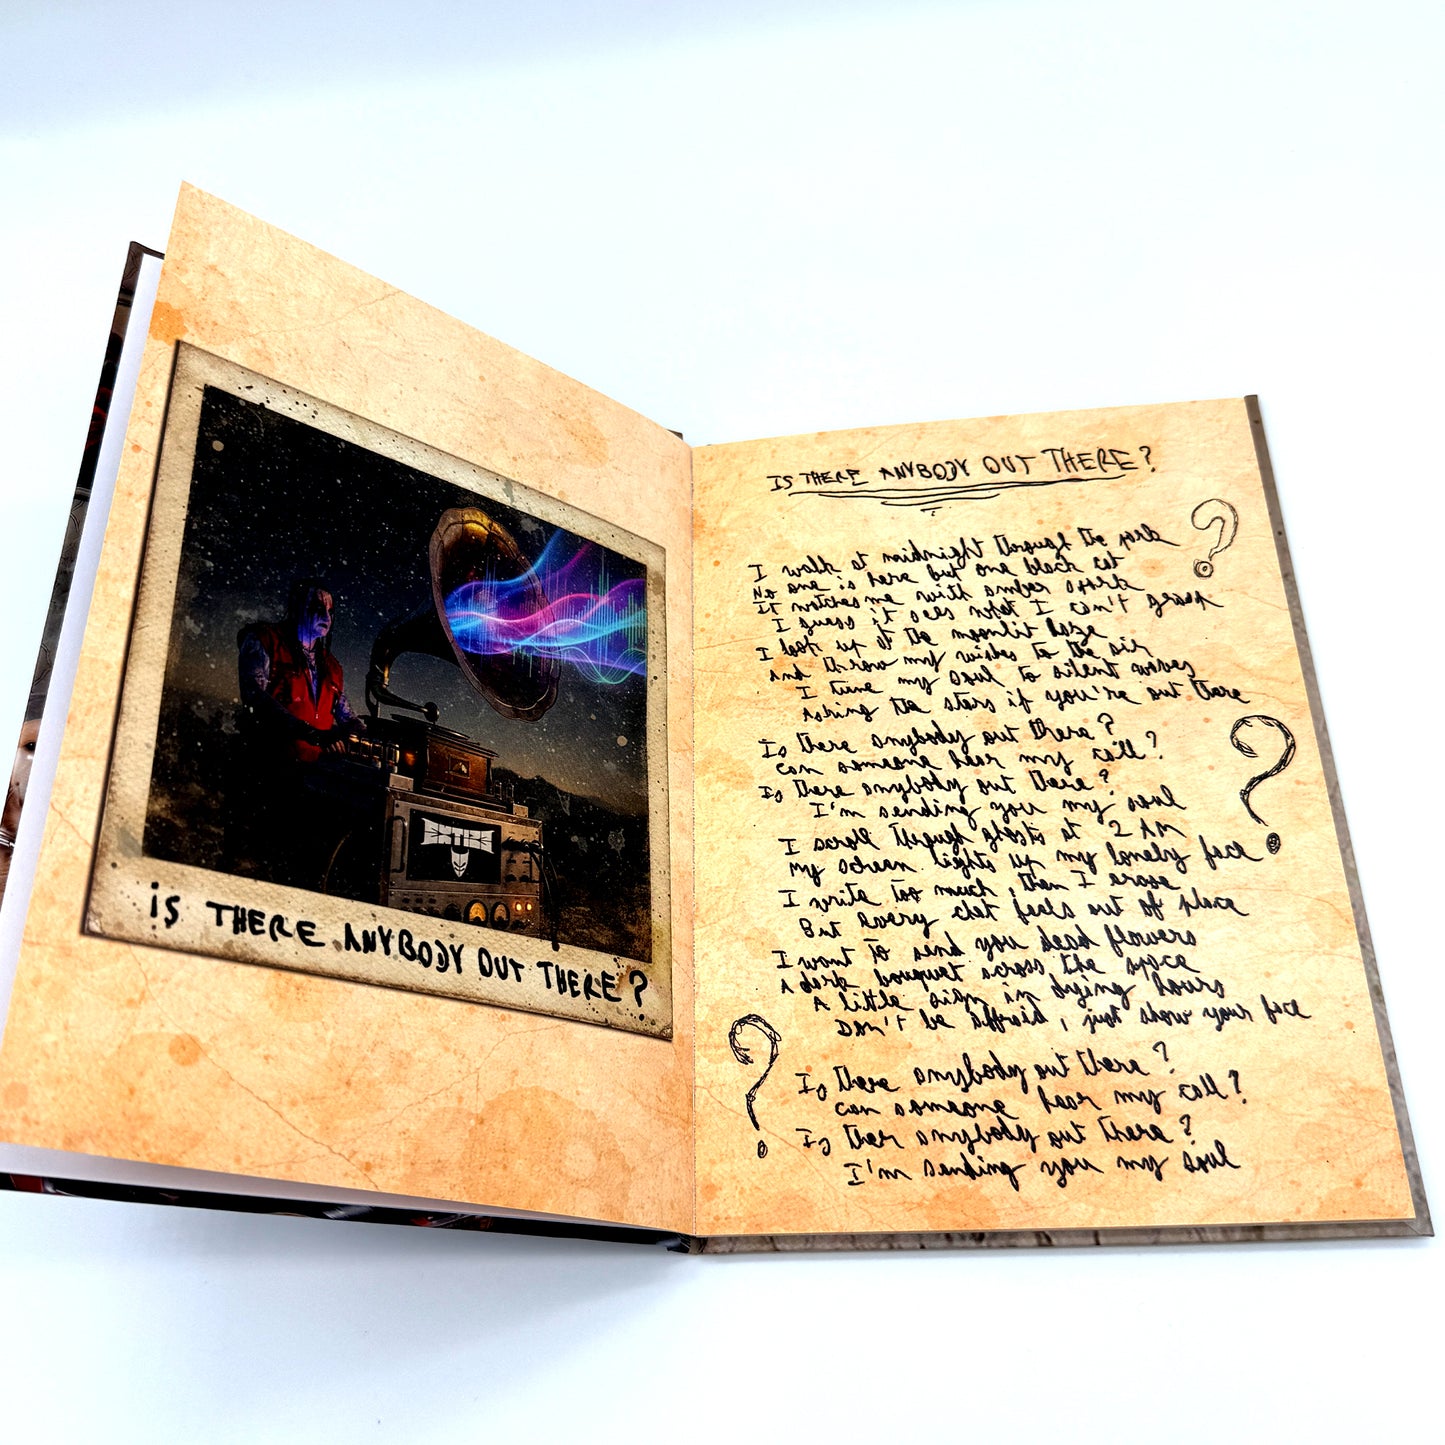 iS THERE ANYBODY OUT THERE?
IS THERE ANYBODY OUT THERE?
I walk at midnight through the park
No one is here but one black cat
It watches me with amber spark
I guess it sees what I can't grasp
I look up at the moonlit haze
And throw my wishes to the air
I tune my soul to silent waves
Asking the stars if you're out there
Is there anybody out there?
can someone hear my call?
Is there anybody out there?
I'm sending you my soul
I scroll through ghosts at 2 AM
My screen lights up my lonely face
I write too much, then I erase
But every chat feels out of place
I want to send you dead flowers
A dark bouquet across the space
A little sign in dying hours
Don't be affraid, just show your face
Is there anybody out there?
can someone hear my call?
Is ther anybody out there?
I'm sending you my soul